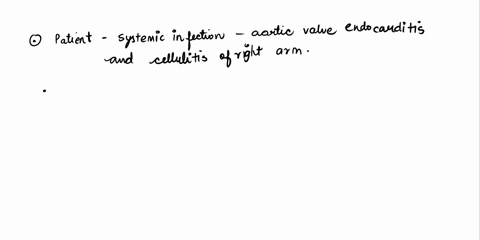 ⊙ Patient - systemic infection - aortic valve endocarditis
and cellulitis of right arm.